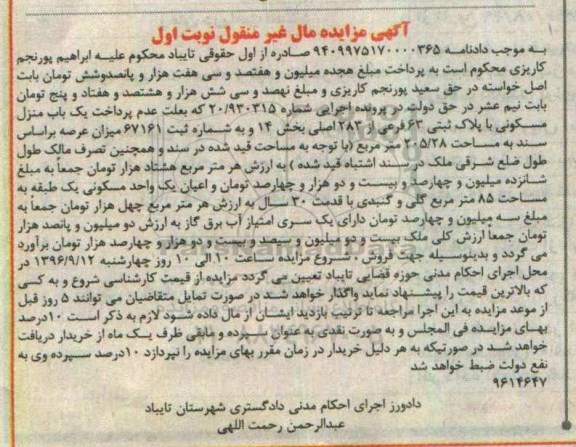 آگهی مزایده مال غیر منقول نوبت اول
به موجب دادنامه ۹۴۰۹۹۷۵۱۷۰۰۰۰۳۶۵ صادره از اول حقوقی تایباد محکوم علیه ابراهیم پورنجم
کاریزی محکوم است به پرداخت مبلغ هجده میلیون و هفتصد و سی هفت هزار و پانصدوشش تومان بابت
اصل خواسته در حق سعید پورنجم کاریزی و مبلغ نهصد و سی شش هزار و هشتصد و هفتاد و پنج تومان
بابت نیم عشر در حق دولت در پرونده اجرایی شماره ۲۰/۹۳۰۳۱۵ که بعلت عدم پرداخت یک باب منزل
مسکونی با پلاک ثبتی ۶۳ فرعی از ۲۸۳ اصلی بخش ۱۴ و به شماره ثبت ۶۷۱۶۱ میزان عرصه براساس
سند به مساحت ۲۰۵/۲۸ متر مربع (با توجه به مساحت قید شده در سند و همچنین تصرف مالک طول
طول ضلع شرقی ملک در سند اشتباه قید شده ) به ارزش هر متر مربع هشتاد هزار تومان جمعاً به مبلغ
شانزده میلیون و چهارصد و بیست و دو هزار و چهارصد تومان و اعیان یک واحد مسکونی یک طبقه به
مساحت ۸۵ متر مربع گلی و گنبدی با قدمت ۳۰ سال به ارزش هر متر مربع چهل هزار تومان جمعاً به
مبلغ سه میلیون و چهارصد تومان دارای یک سری امتیاز آب برق گاز به ارزش دو میلیون و پانصد هزار
تومان جمعاً ارزش کلی ملک بیست و دو میلیون و سیصد و بیست و دو هزار و چهارصد هزار تومان برآورد
می گردد و بدینوسیله جهت فروش شروع مزایده ساعت ۱۰ الی ۱۰ روز چهارشنبه ۱۳۹۶/۹/۱۲ در
محل اجرای احکام مدنی حوزه قضایی تایباد تعیین می گردد مزایده از قیمت کارشناسی شروع و به کسی
که بالاترین قیمت را پیشنهاد نماید واگذار خواهد شد در صورت تمایل متقاضیان می توانند ۵ روز قبل
از موعد مزایده به این اجرا مراجعه تا ترتیب بازدید ایشان از مال داده شود لازم به ذکر است ۱۰درصد
بهای مزایده فی المجلس و به صورت نقدی به عنوان سپرده و مابقی ظرف یک ماه از خریدار دریافت
خواهد شد در صورتیکه به هر دلیل خریدار در زمان مقرر بهای مزایده را نپردازد ۱۰درصد سپرده وی به
نفع دولت ضبط خواهد شد
۹۶۱۴۶۴۷
دادورز اجرای احکام مدنی دادگستری شهرستان تایباد
عبدالرحمن رحمت اللهی